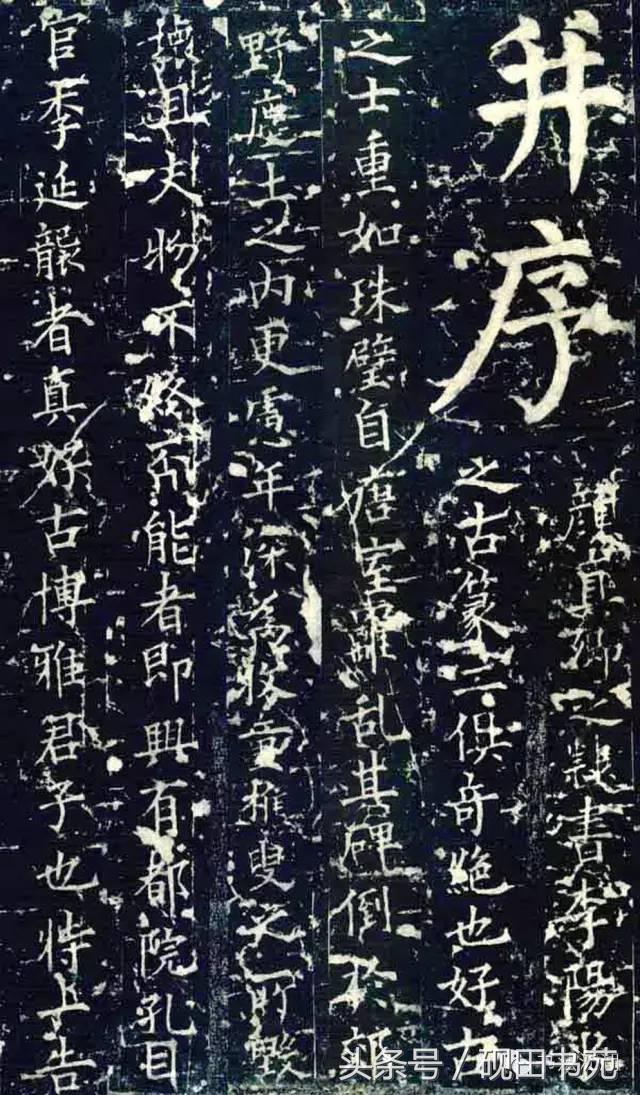 并序
顏真卿之隷書李陽冰
之古篆二俱奇絶也好古
之士重如珠璧自唐室離乱其碑倒於郊
野塵土之内更慮年深爲牧童樵叟之所毀
壞且夫物不終否能者即興有都院孔目
官李延襲者真好古博雅君子也特上告
头条号 / 砚田书苑